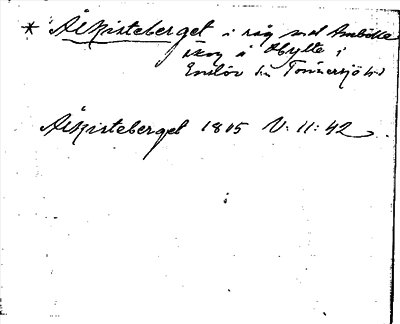 * Ålkisteberget i råg med Ambökke
skog å Hylte i
Enslöv sn Tönnersjö hd
Ålkisteberget 1805 V: 11: 42